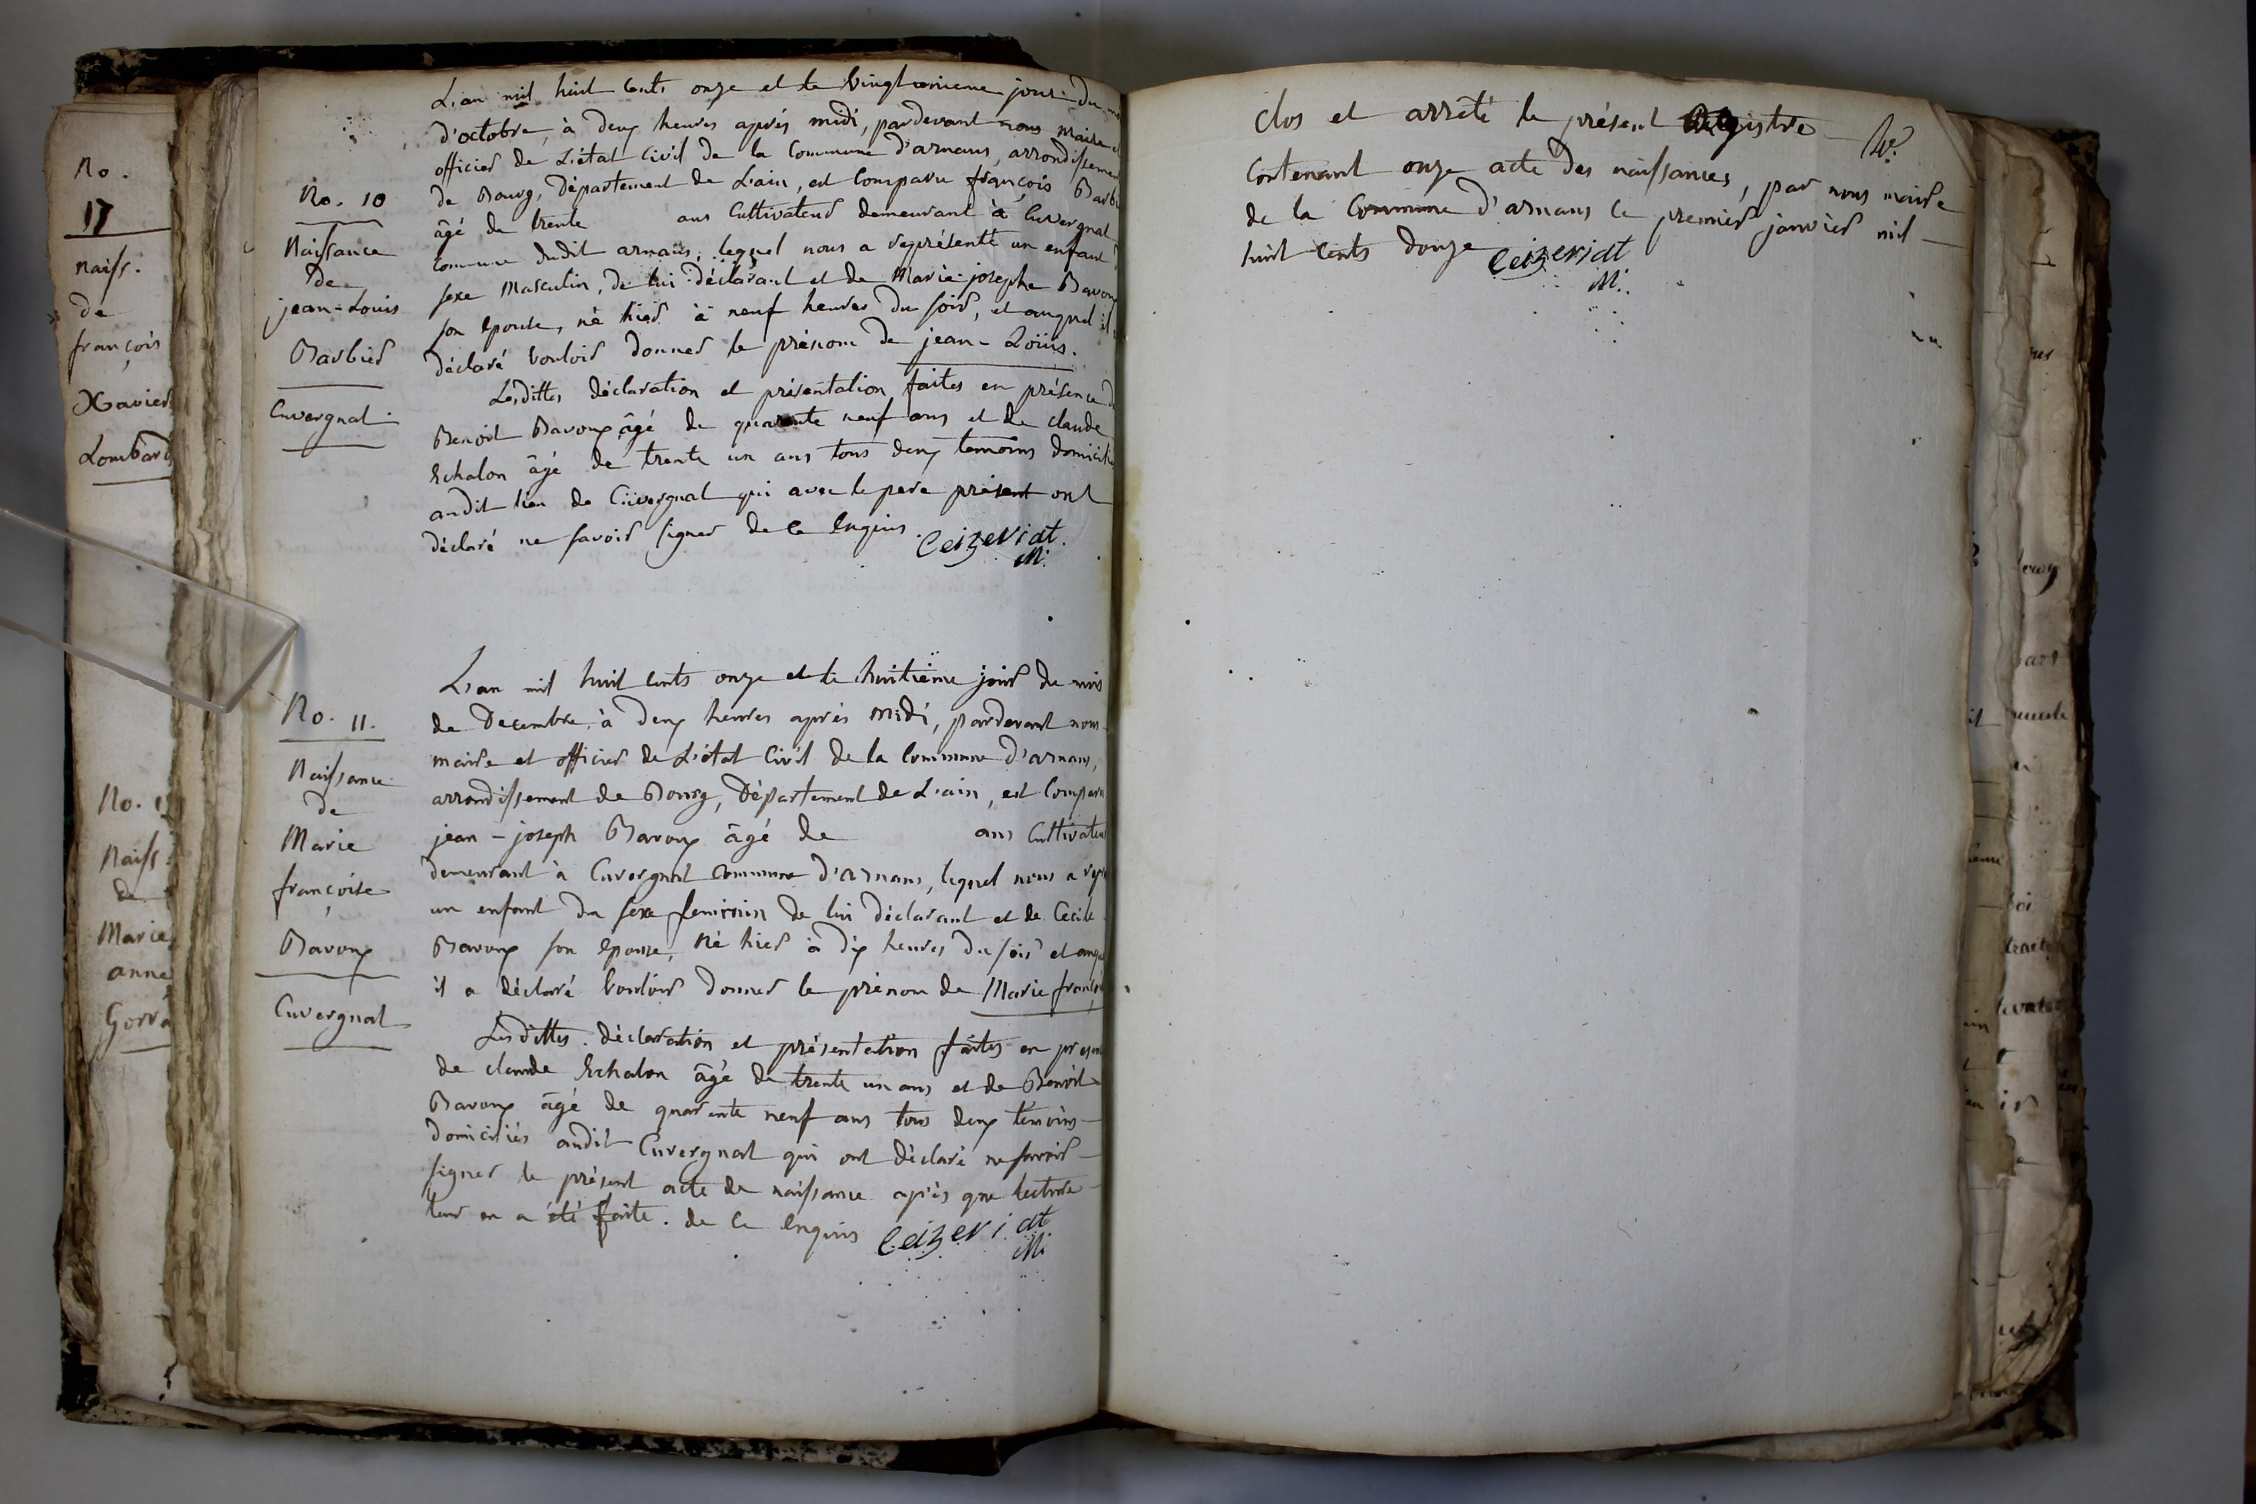 No.
17
naiss.
de
françois
Xavier
Lombard
No. 1
Naiss.
de
Marie
anne
Gorra
No. 10
Naissance
de
jean-Louis
Barbier
Cuvergnat
L'an mil huit cents onze et le vingt onzieme jour du
d'octobre, à deux heures après midi, pardevant nous Maire et
officier de L'état Civil de la Commune d'arnans, arrondissemen
de Bourg, Département de L'ain, est Comparu françois Barbi
âgé de trente ans Cultivateur demeurant à Cuvergnat
commune dudit arnans, lequel nous a représenté un enfant d
sexe Masculin, de lui déclarant et de Marie-josephe Bavoux
son epouse, né hier à neuf heures du soir, et auquel il
déclaré vouloir donner le prénom de jean-Loüis.
Lesdittes déclaration et présentation faites en présence d
Benoit Bavoux âgé de quarante neuf ans et de claude
Echalon âgé de trente un ans tous deux temoins domicili
audit lieu de Cüvergnat qui avec le pere présent ont
déclaré ne savoir signer de ce Enquis. Ceizeriat
M.
No. 11.
Naissance
de
Marie
françoise
Bavoux
Cuvergnat
L'an mil huit cents onze et le huitième jour du mois
de Decembre à deux heures après midi, pardevant nous
maire et officier de L'état Civil de la Commune d'arnans,
arrondissement de Bourg, Département de L'ain, est Comparu
jean-joseph Bavoux âgé de ans Cultivateur
demeurant à Cuvergnat commune d'arnans, lequel nous a repr
un enfant du sexe feminin de lui déclarant et de Cecile
Bavoux son epouse, né hier à dix heures du soir et auqu
il a déclaré vouloir donner le prénom de Marie françoi
Lesdittes déclaration et présentation faites en presen
de claude Echalon âgé de trente un ans et de Benoit
Bavoux âgé de quarante neuf ans tous deux temoins
domiciliés audit Cuvergnat qui ont déclaré ne savoir
signer le présent acte de naissance après que lecture
leur en a été faite. de ce Enquis Ceizeriat
M.
Clos et arrêté le présent Registre
Contenant onze acte des naissances, par nous maire
de la Commune d'arnans ce premier janvier mil
huit cents douze Ceizeriat
M.